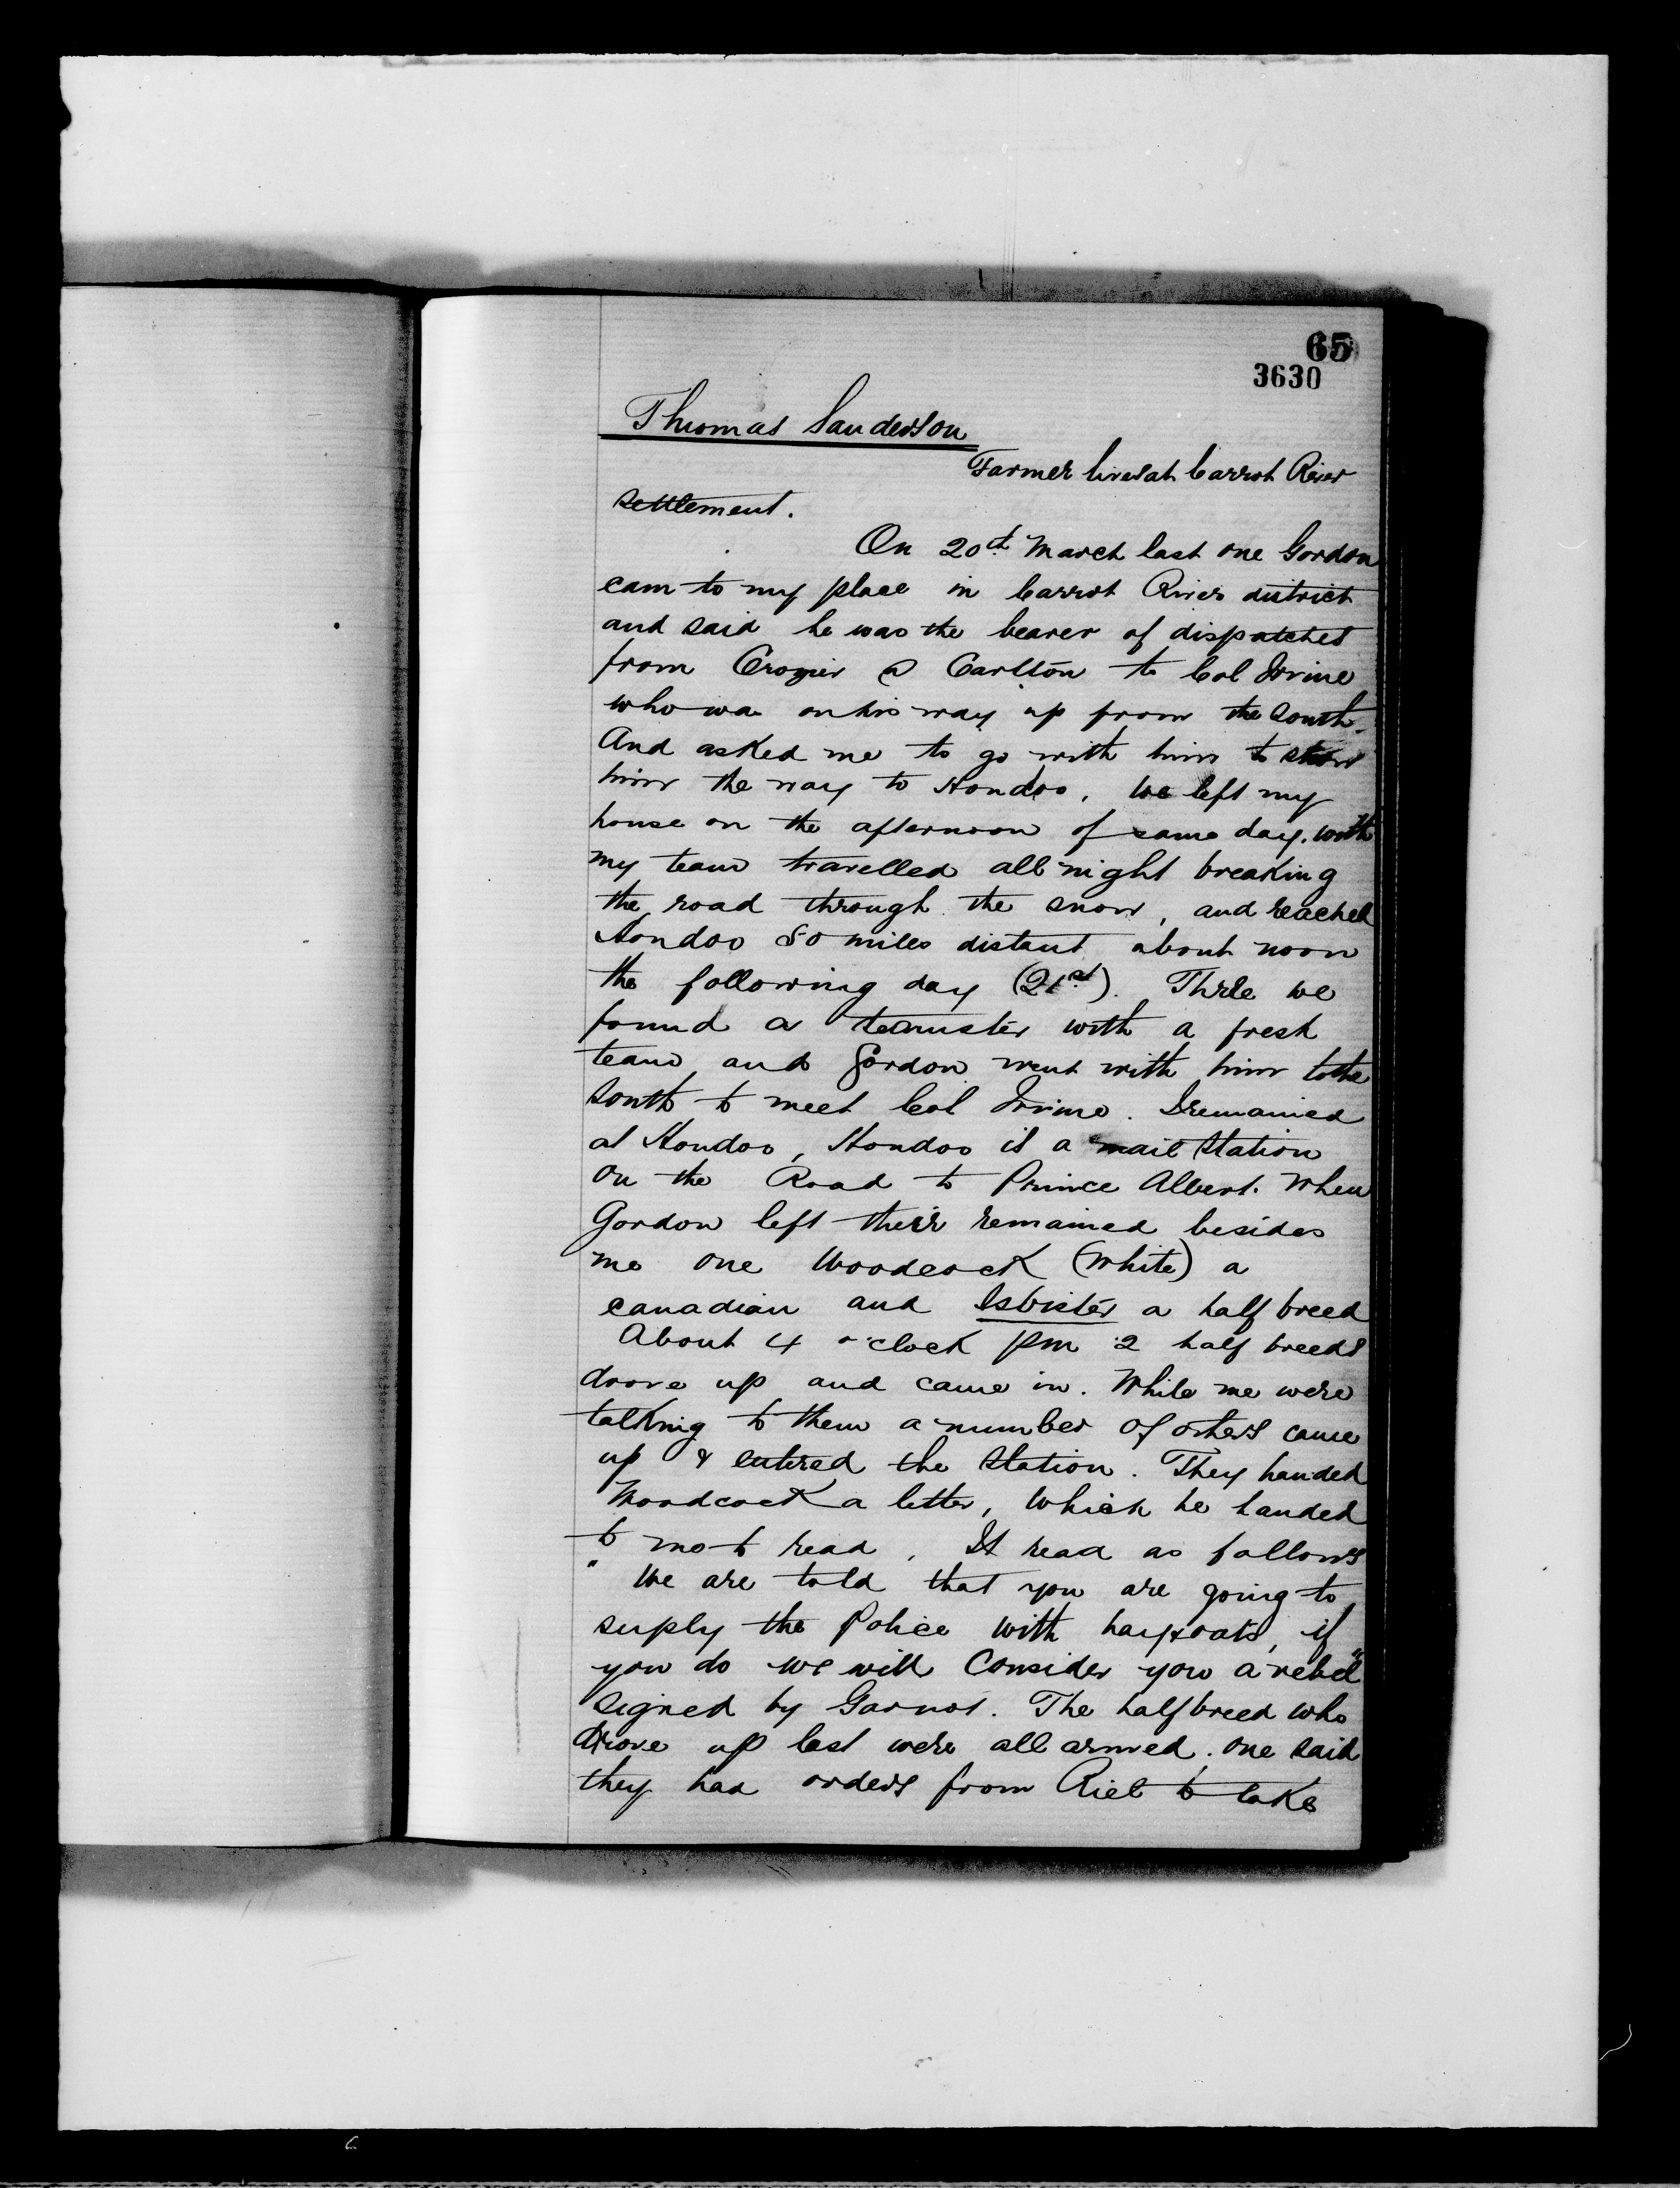 65
3630
Thomas Sanderson
Farmer lives at Carrot River
settlement.
On 20th March last one Gordon
cam to my place in Carrot River district
and said he was the bearer of dispatches
from Crozier @ Carlton to Col Irvine
who wa on his way up from the South.
And asked me to go with him to show
him the way to Hoodoo. We left my
house on the afternoon of same day. with
my team travelled all night breaking
the road through the snow, and reached
Hoodoo 50 miles distant about noon
the following day (21st). There we
found a teamster with a fresh
team and Gordon went with him to the
South to meet Col Irvine. I remained
at Hoodoo, Hoodoo is a mail Station
on the Road to Prince Albert. When
Gordon left their remained besides
me one Woodcock (White) a
Canadian and Isbister a half breed
About 4 o'clock pm 2 half breeds
drove up and came in. While we were
talking to them a number of others came
up & entered the Station. They handed
Woodcock a letter, which he handed
to me to read. It read as follows
"We are told that you are going to
supply the Police with hay & oats, if
you do we will consider you a rebel"
signed by Garnot. The half breed who
drove up last were all armed. one said
they had orders from Riel to take